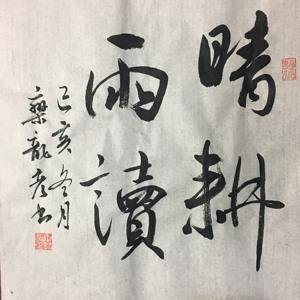 晴耕
雨讀
己亥冬月
龍彦书